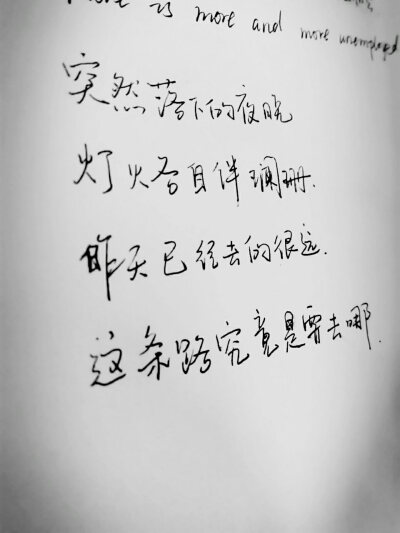 There is more and more unemployed
突然落下的夜晚
灯火各自伴瓓珊.
昨天已经去的很远.
这条路究竟是要去哪.